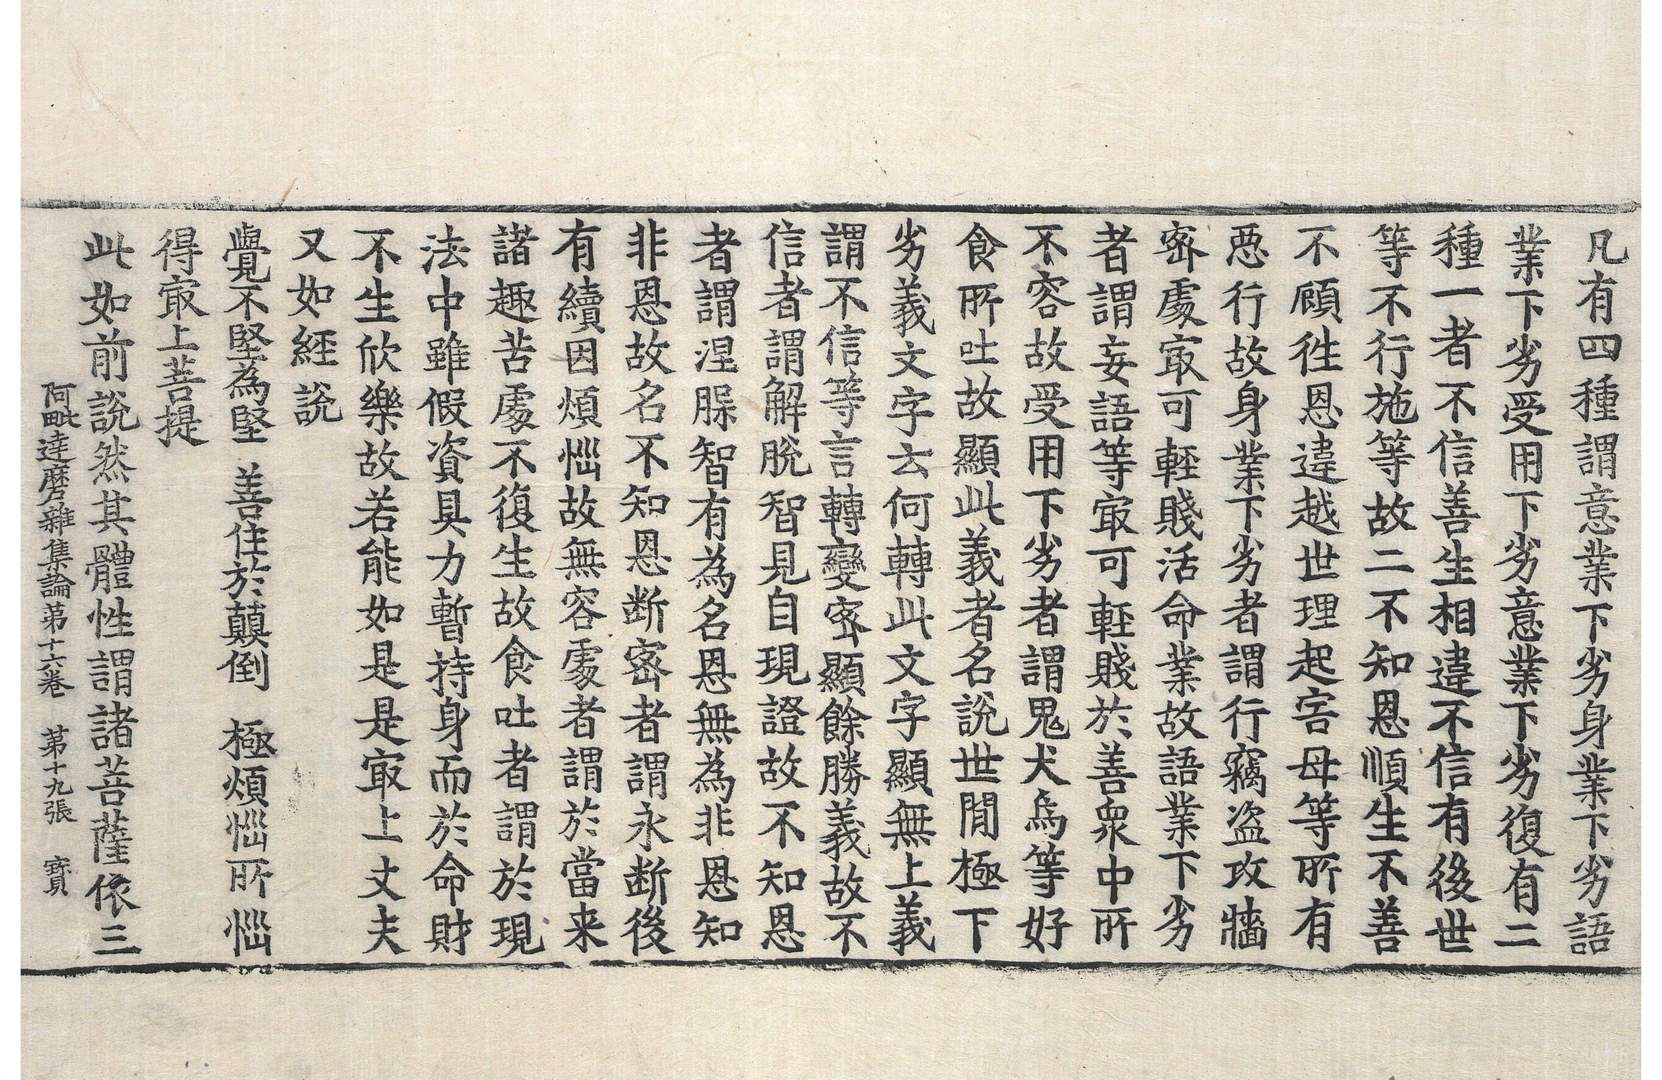 凡有四種謂意業下劣身業下劣語
業下劣受用下劣意業下劣復有二
種一者不信善生相違不信有後世
等不行施等故二不知恩順生不善
不顧徃恩違越世理起害母等所有
惡行故身業下劣者謂行竊盜攻牆
密處㝡可輕賤活命業故語業下劣
者謂妄語等㝡可輕賤於善衆中所
不容故受用下劣者謂鬼犬烏等好
食所吐故顯此義者名說世閒極下
劣義文字云何轉此文字顯無上義
謂不信等言轉變密顯餘勝義故不
信者謂解脫智見自現證故不知恩
者謂涅槃智有為名恩無為非恩知
非恩故名不知恩断密者謂永断後
有續因煩惱故無容處者謂於當来
諸趣苦處不復生故食吐者謂於現
法中雖假資具力暫持身而於命財
不生欣樂故若能如是是㝡上丈夫
又如經說
覺不堅為堅　善住於顛倒　極煩惱所惱
得㝡上菩提
此如前說然其體性謂諸菩薩依三
阿毗達磨雜集論第十六卷　第十九張　寶